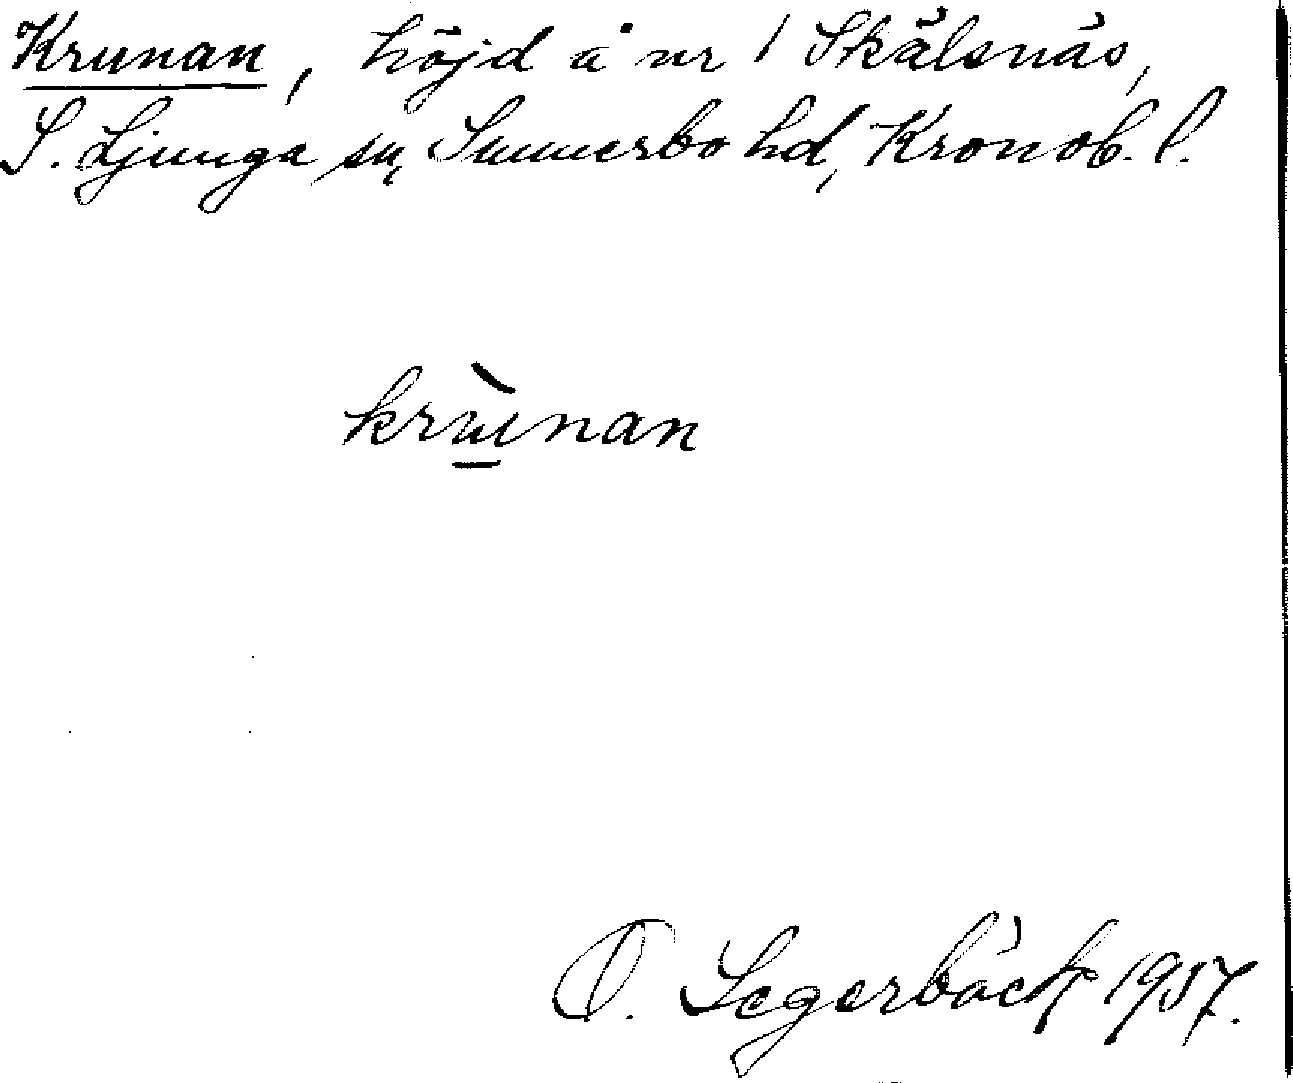 Krunan, höjd å nr 1 Skälsnäs,
S. Ljunga sn, Sunnerbo hd, Kronob. l.
krùnan
O. Segerbäck 1957.